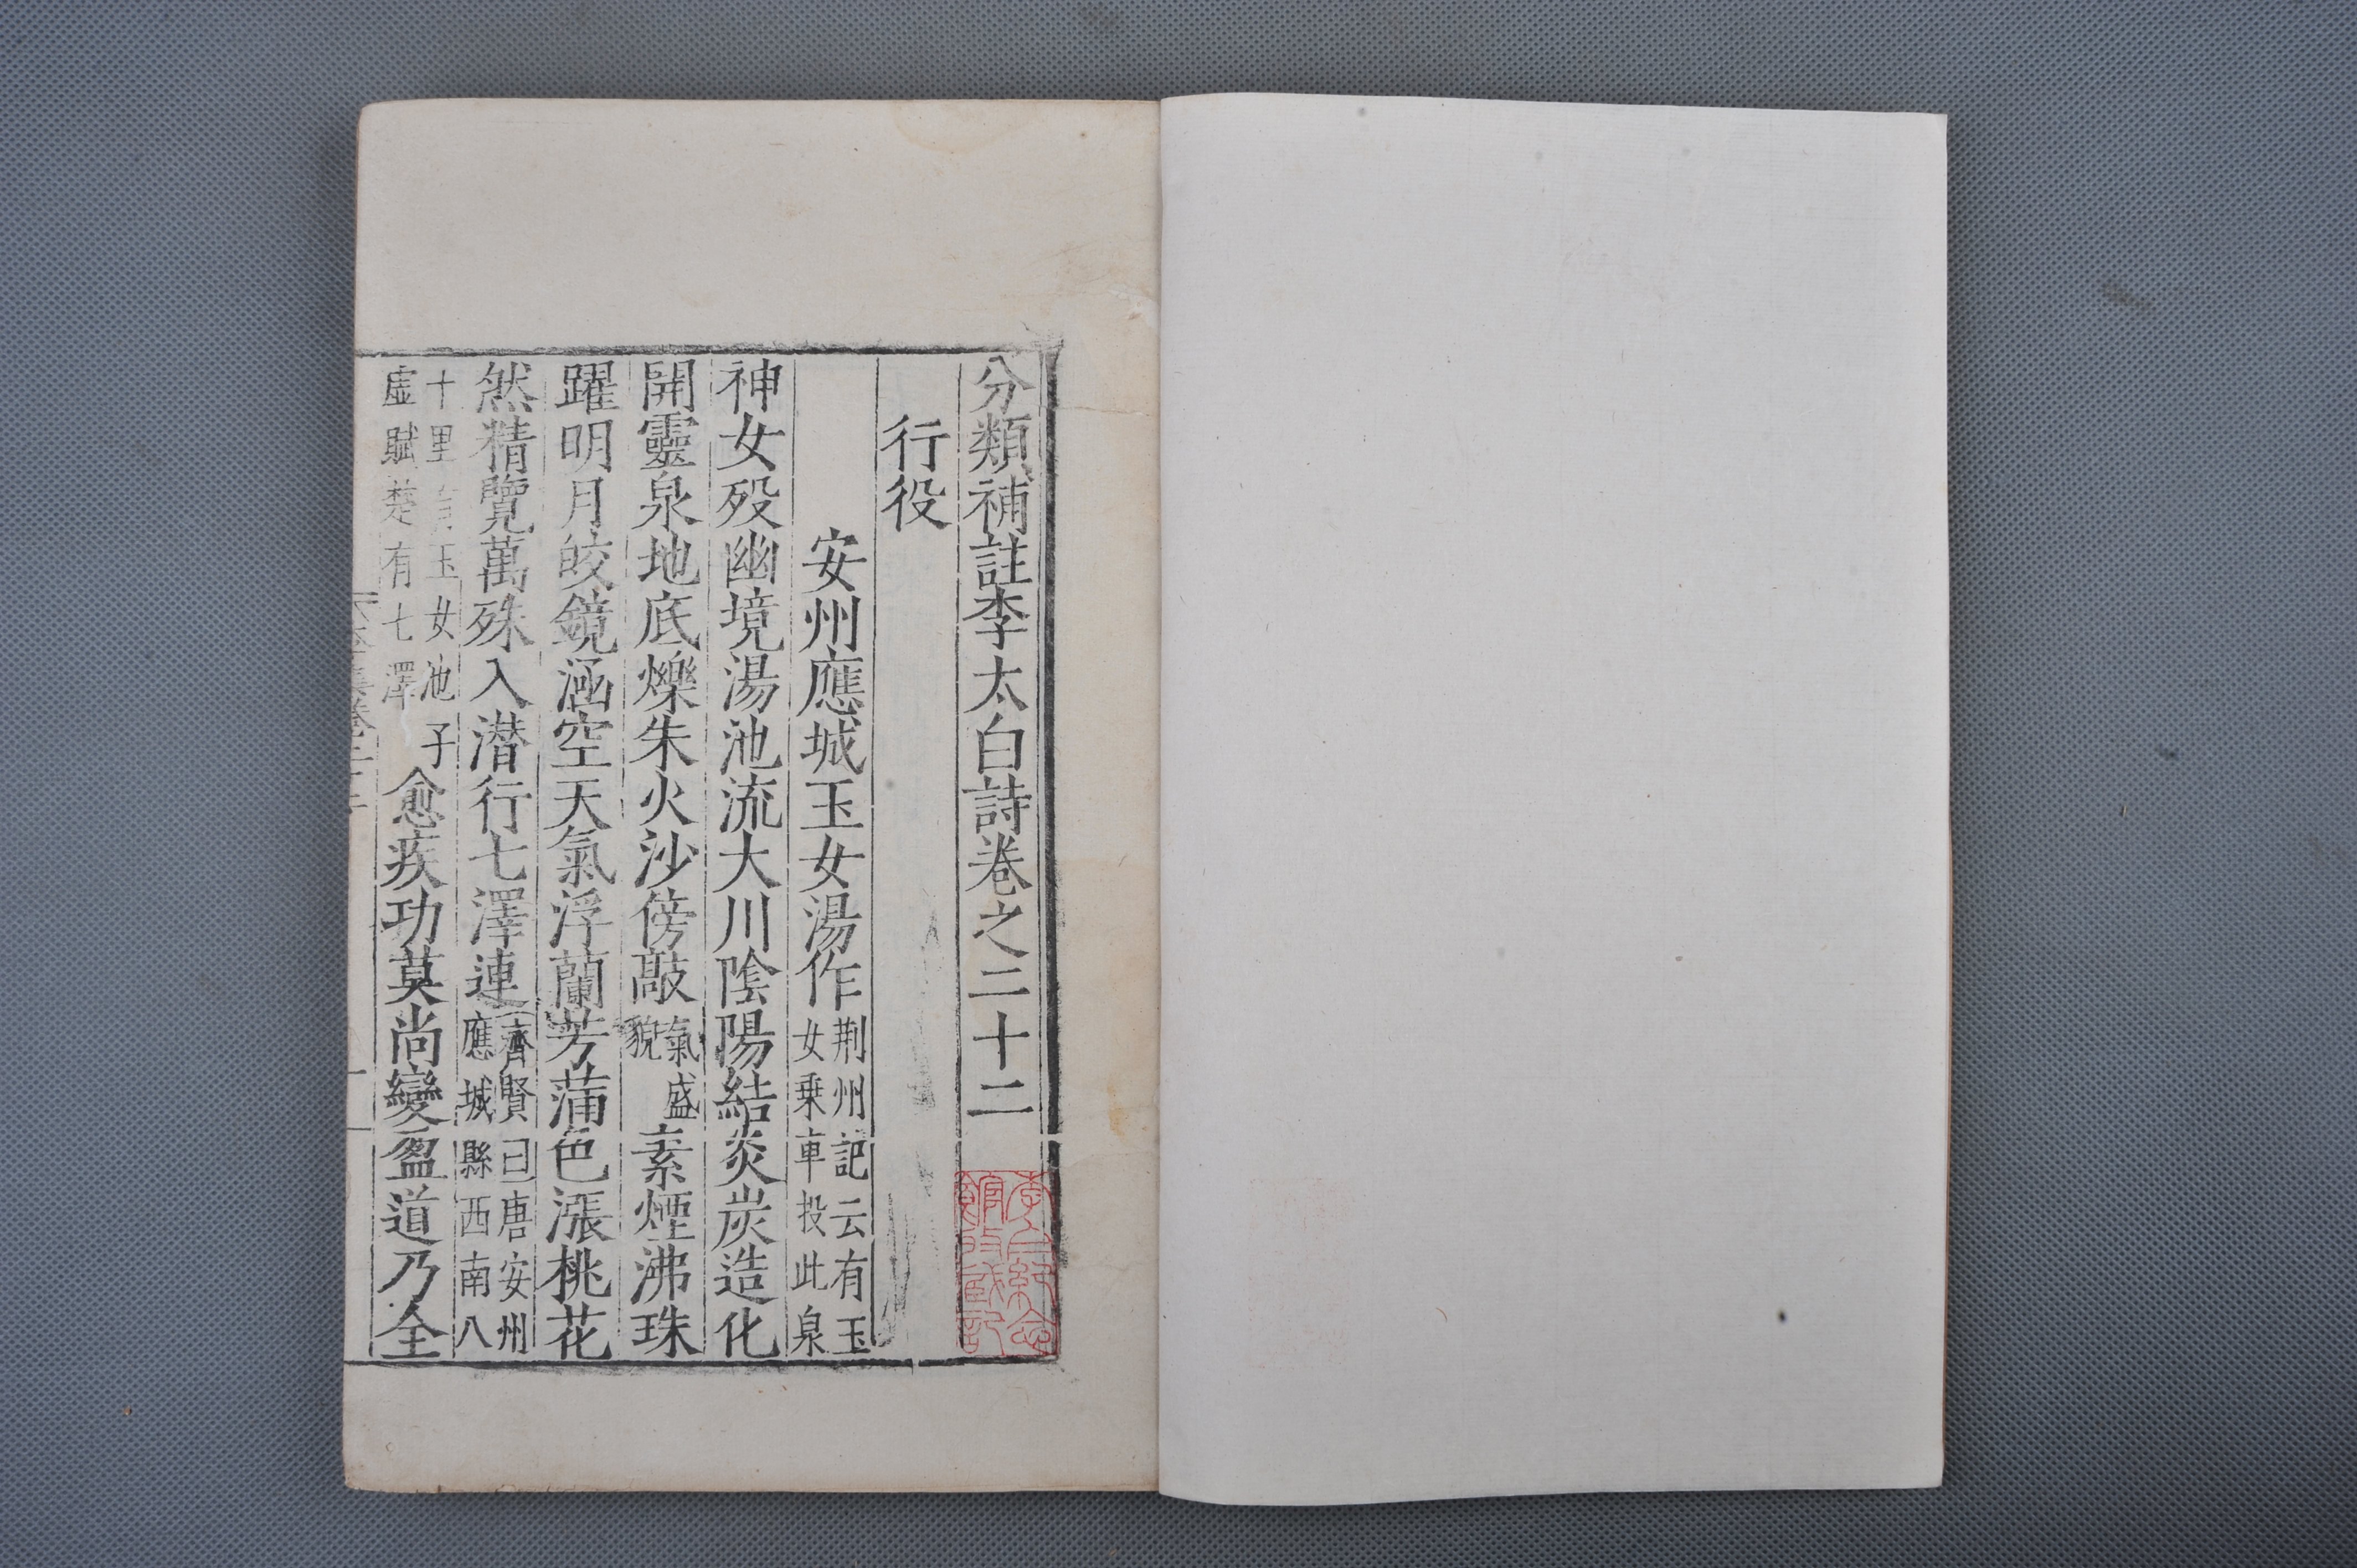 分類補註李太白詩卷之二十二
行役
安州應城玉女湯作荆州記云有玉女乗車投此泉
神女殁幽境湯池流大川陰陽結炎炭造化
開靈泉地底爍朱火沙傍歊氣盛貌素煙沸珠
躍明月皎鏡涵空天氣浮蘭芳蒲色漲桃花
然精覽萬殊入潜行七澤連齊賢曰唐安州應城縣西南八
十里有玉女池子虚賦楚有七澤愈疾功莫尚變盈道乃全